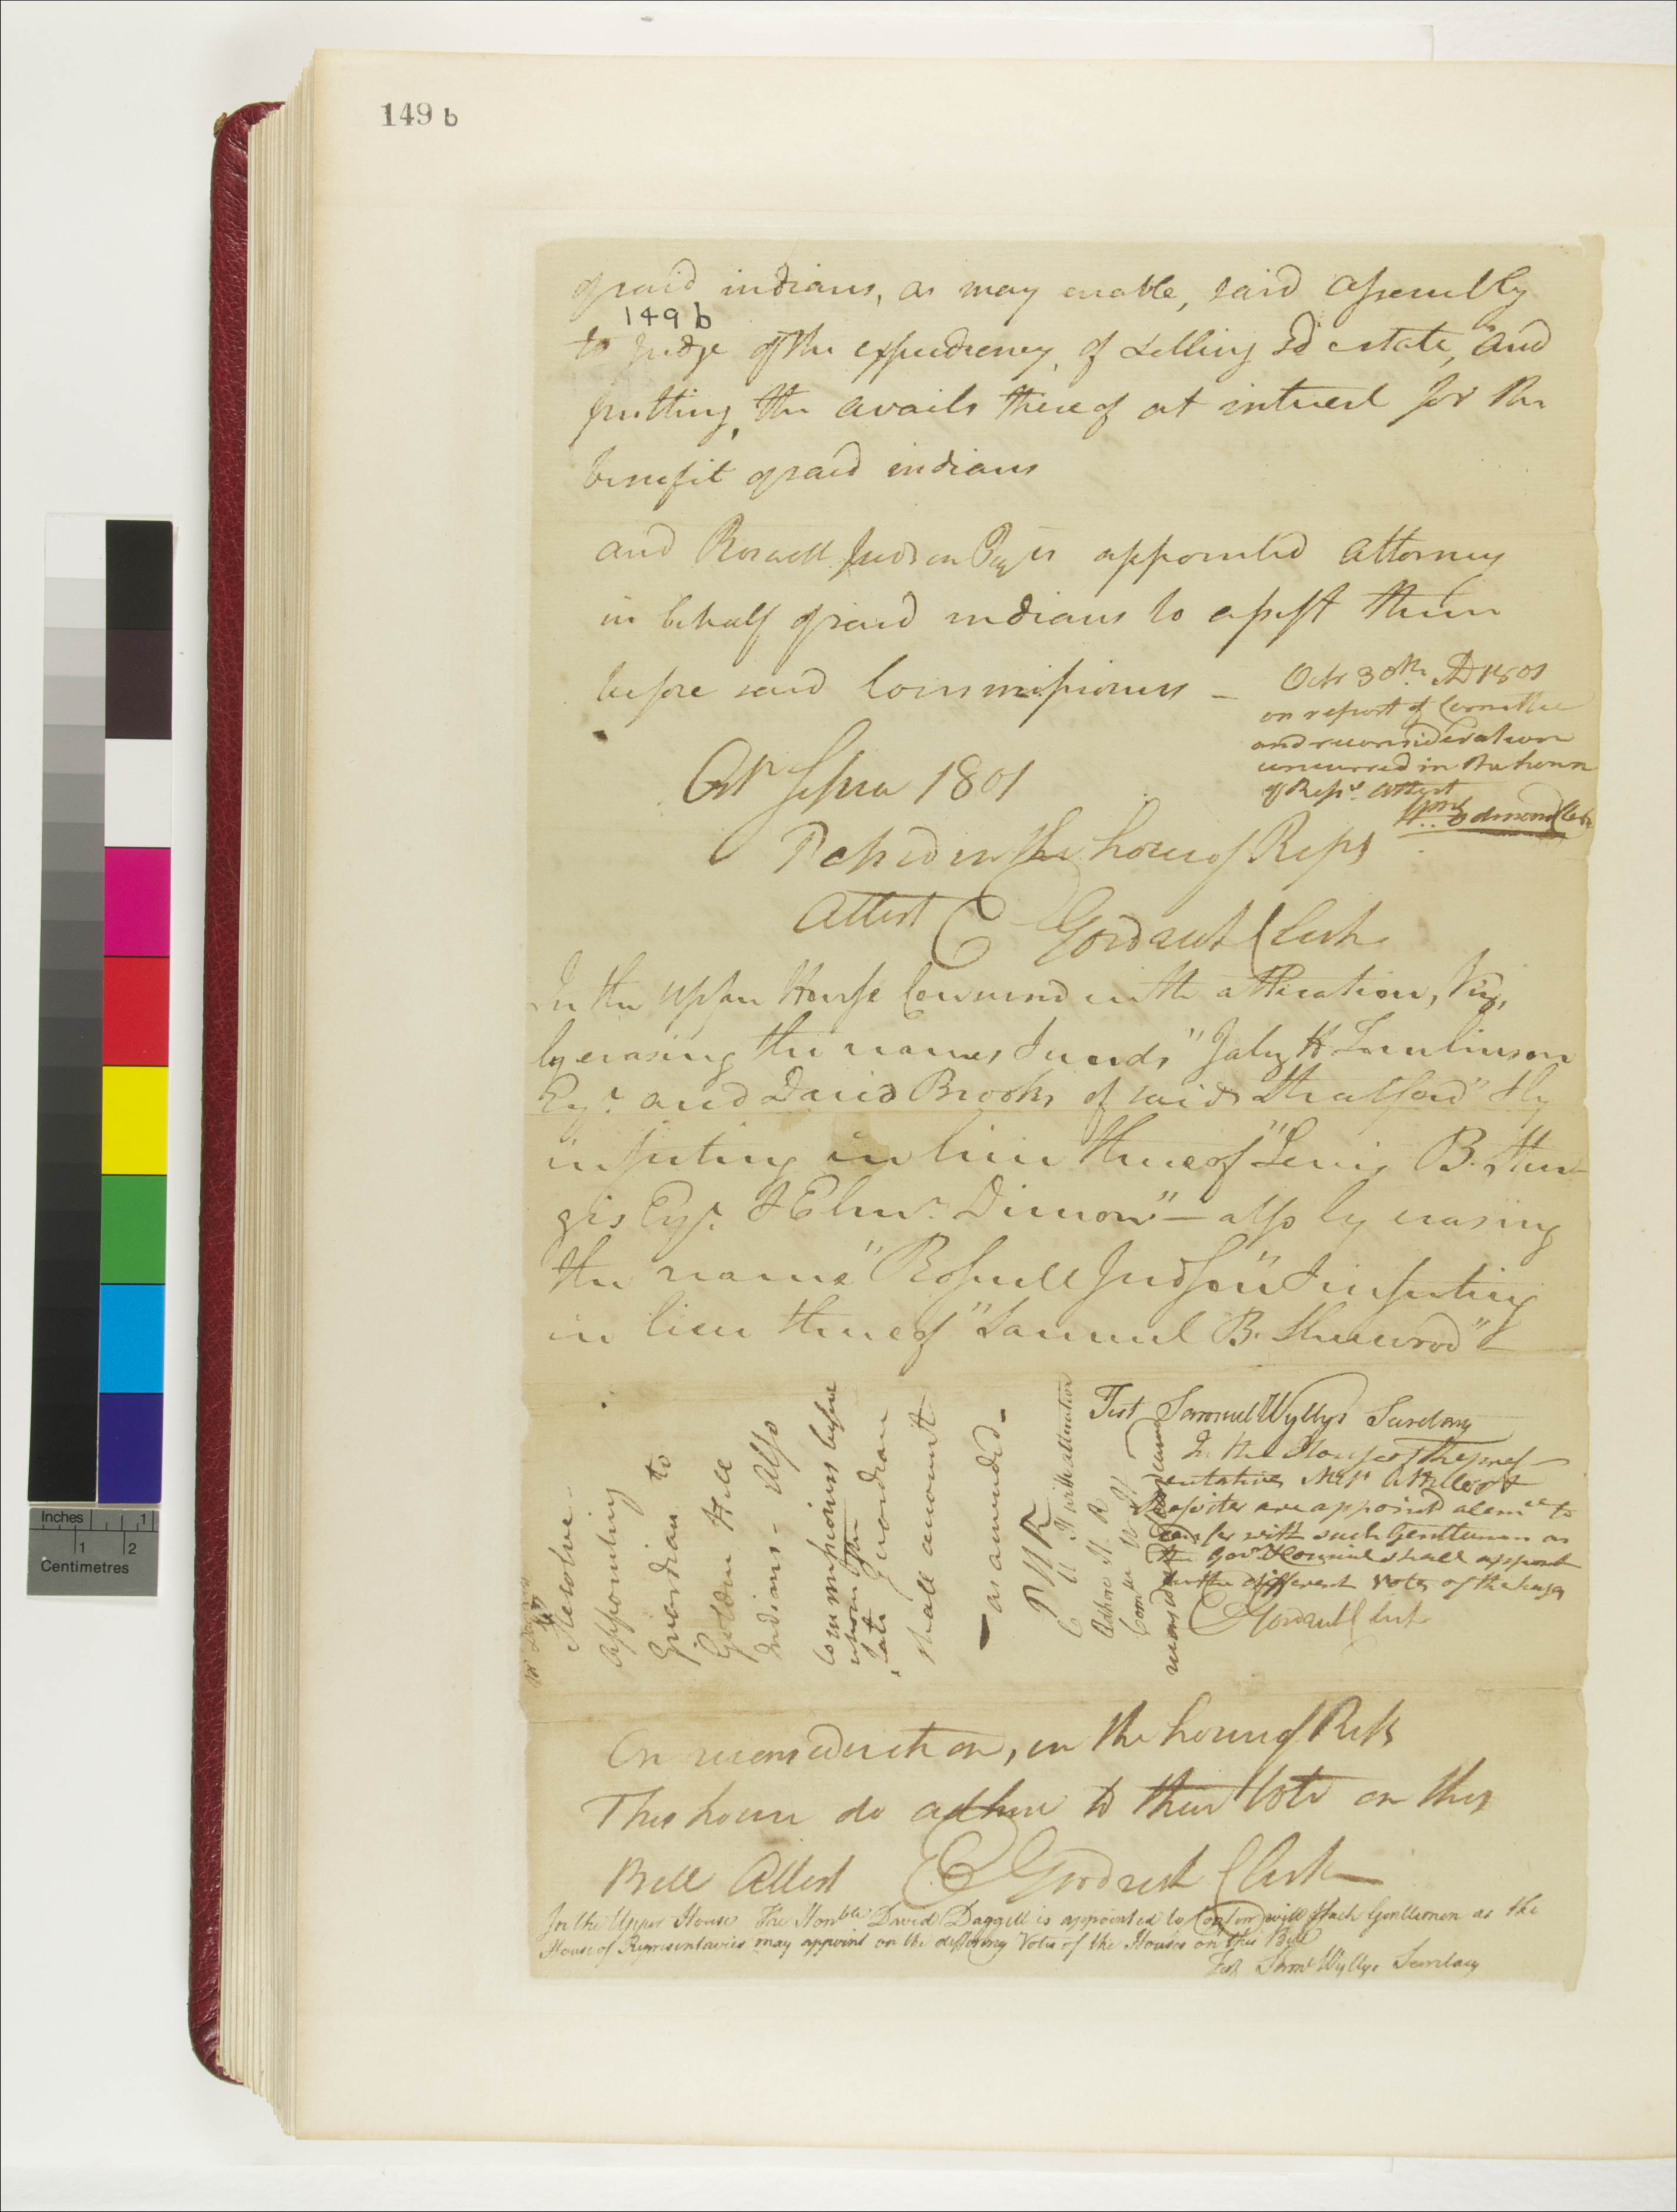 149 b
of said indians, as may enable, said assembly
149 b
to judge of the expediency, of selling sd estate, and
putting, the avails thereof at interest for the
benefit of said indians
and Roswell Judson Esqr is appointed Attorney
in behalf of said indians to assist them
before said Commissioners –
Octr 30th. AD 1801
on report of Committee
and reconsideration
concurred in the house
of Reps. attest
Wm. Edmond Clerk
Octr Session 1801
Passed in the house of Reps
Attest E Goodrich Clerk
In the upper House Concurred with alteration, Viz,
by erasing the names & words "Jabez H Tomlinson
Esqr. and David Brooks of said Stratford" & by
inserting in lieu thereof "Lewis B. Stur-
ges Esqr. & Ebenr. Dimon" – also by erasing
the name "Roswell Judson" & inserting
in lieu thereof "Samuel B. Sherwood"
Test Samuel Wyllys Secretary
In the House of Repres-
entatives Messrs
are appointed a Comee to
confer with such Gentlemen as
the Govr & Council shall appoint
on the different Votes of the houses
E Goodrich Clerk
Resolve
appointing
Guardian to
Golden Hill
Indians – also
Commissioners before
whom the
late Guardian
shall account
– as amended –
P H R
C U H with alteration
Adhere H. R
Con U H
reconsidered
On reconsideration, in the house of Reps
This house do adhere to their Vote on this
Bill Attest E Goodrich Clerk
In the Upper House The Honble David Daggett is appointed to Confer with such Gentlemen as the
House of Representatives may appoint on the differing Votes of the Houses on this Bill
Test Saml Wyllys Secretary
Inches 1
1 2
Centimetres